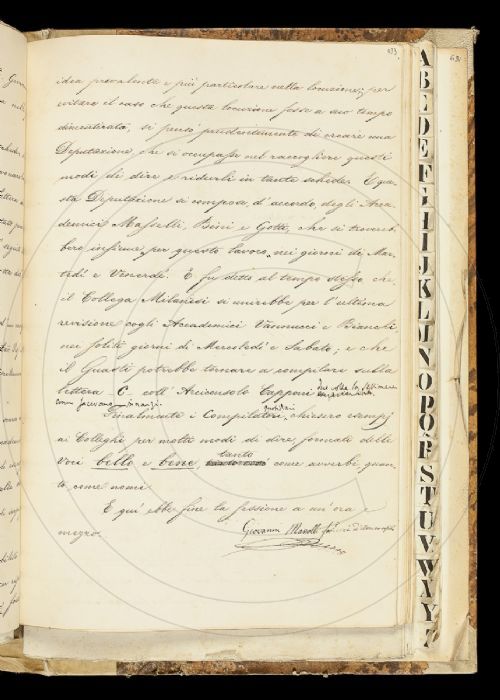 433
idea prevalente e più particolare nella locuzione; per
evitare il caso che questa locuzione fosse a suo tempo
dimenticata, si pensò prudentemente di creare una
Deputazione che si occupasse nel raccogliere questi
modi di dire e ridurli in tante schede. E que-
sta Deputazione si compose, d'accordo, degli Acca-
demici Masselli, Bini e Gotti, che si trovereb-
bero insieme, per questo lavoro, nei giorni di Mar-
tedì e Venerdì. E fu detto al tempo stesso che
il Collega Milanesi si unirebbe per l'ultima
revisione cogli Accademici Vannucci e Bianchi,
nei soliti giorni di Mercoledì e Sabato; e che
il Guasti potrebbe tornare a compilare sulla
lettera C coll' Arciconsolo Capponi due volte la settimana
come facevano
Finalmente i Compilatori, chiesero esempj
ai Colleghi per molti modi di dire formati delle
Voci bello e bene tanto come avverbi quan-
to come nomi.
E qui ebbe fine la sessione a un'ora e
mezzo.
Giovanni Masselli
A
B
C
D
E
F
G
H
I
J
K
L
M
N
O
P
Q
R
S
T
U
V
W
X
Y
Z